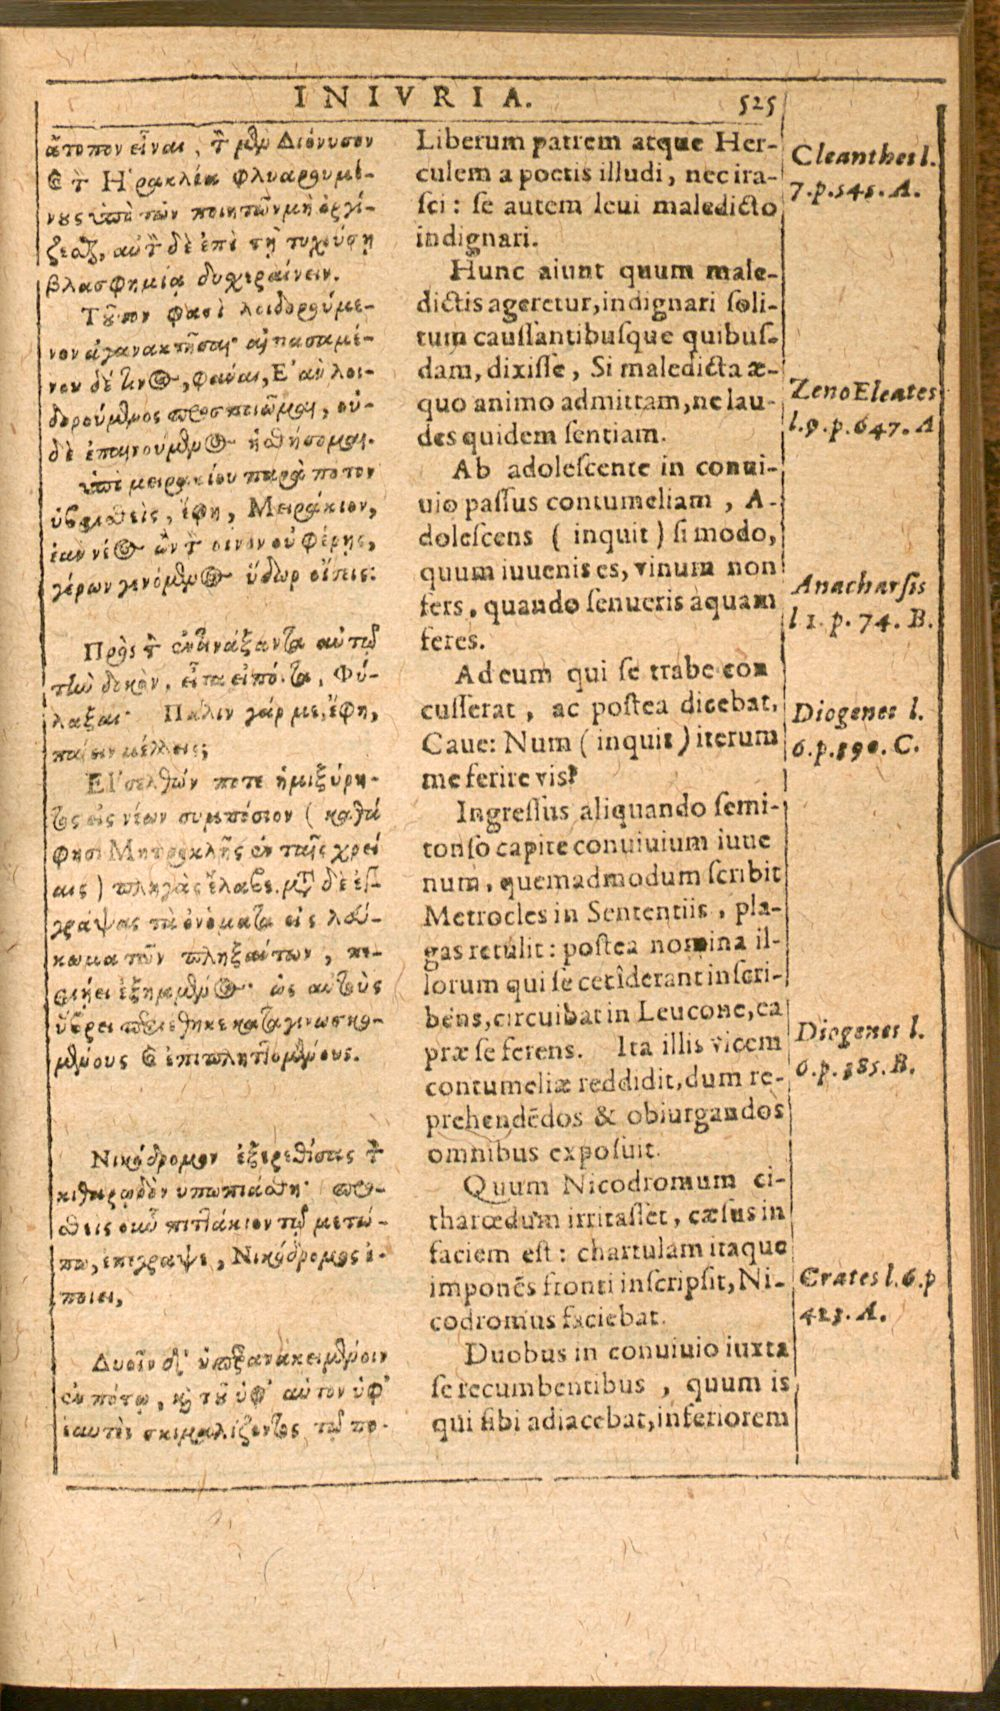 INIVRIA. 525
ἄτοπον εἶναι, τὸν μὲν Διόνυσον
καὶ τὸν Ἡρακλέα φλυαρουμέ-
νους ὑπὸ τῶν ποιητῶν μὴ ὀργί-
ζεσθαι, αὐτὸν δὲ ἐπὶ τῇ τυχούσῃ
βλασφημίᾳ δυχεραίνειν.
Τοῦτον φασὶ λοιδορούμε-
νον ἀγανακτῆσαι· αἰτιασαμέ-
νου δέ τινος, φάναι, Ἐ' αὰν λοι-
δορούμενος προσποιῶμαι, οὐ-
δὲ ἐπαινούμενος ἡσθήσομαι.
ὑπὸ μειρακίου παρὰ ποτον
ὑβρισθεὶς, ἔφη, Μειράκιον,
ἐὰν νέος ὢν τὸν οἶνον οὐ φέρῃς,
γέρων γενόμενος ὕδωρ οἴσεις.
Πρὸς τὸν ἐντινάξαντα αὐτῷ
τὴν δοκὸν, εἶτα εἰπόντα, Φύ-
λαξαι· Πάλιν γάρ με, ἔφη,
παίειν μέλλεις;
Εἰσελθών ποτε ἡμιξύρη-
τος εἰς νέων συμπόσιον (καθά
φησι Μητροκλῆς ἐν ταῖς χρεί
αις) πληγὰς ἔλαβε. μετὰ δὲ ἐπι-
γράψας τὰ ὀνόματα εἰς λεύ-
κωμα τῶν πληξάντων, πε-
ριῄει ἐξημμένος· ὡς αὐτοὺς
ὕβρει περιέθηκε καταγινωσκο-
μένους καὶ ἐπιπληττομένους.
Νικόδρομον ἐξερεθίσας τὸν
κιθαρῳδὸν ὑπωπιάσθη· προς-
θεὶς οὖν πιττάκιον τῷ μετώ-
πῳ, ἐπέγραψε, Νικόδρομος ἐ-
ποίει,
Δυοῖν δὲ ὑπεξανακειμένοιν
ἐν πότῳ, καὶ τοῦ ὑφ' αὑτὸν ὑφ'
ἑαυτὸν σκιμαλίζοντος τῷ πο-
Liberum patrem atque Her-
culem a poetis illudi, nec ira-
sci: se autem leui maledicto
indignari.
Hunc aiunt quum male-
dictis ageretur, indignari soli-
tum caussantibusque quibus-
dam, dixisse, Si maledicta æ-
quo animo admittam, ne lau-
des quidem sentiam.
Ab adolescente in conui-
uio passus contumeliam, A-
dolescens (inquit) si modo,
quum iuuenis es, vinum non
fers, quando senueris aquam
feres.
Ad eum qui se trabe con
cusserat, ac postea dicebat,
Caue: Num (inquit) iterum
me ferire vis?
Ingressus aliquando semi-
tonso capite conuiuium iuue
num, quemadmodum scribit
Metrocles in Sententiis, pla-
gas retulit: postea nomina il-
lorum qui se ceciderant inscri-
bens, circuibat in Leucone, ea
præ se ferens. Ita illis vicem
contumeliæ reddidit, dum re-
prehendēdos & obiurgandos
omnibus exposuit.
Quum Nicodromum ci-
tharœdum irritasset, cæsus in
faciem est: chartulam itaque
imponēs fronti inscripsit, Ni-
codromus faciebat.
Duobus in conuiuio iuxta
se recumbentibus, quum is
qui sibi adiacebat, inferiorem
Cleanthes l.
7.p.545. A.
Zeno Eleates
l.9.p.647. A
Anacharsis
l 1. p. 74. B.
Diogenes l.
6.p.390. C.
Diogenes l.
6.p.385. B.
Crates l.6.p
423. A.